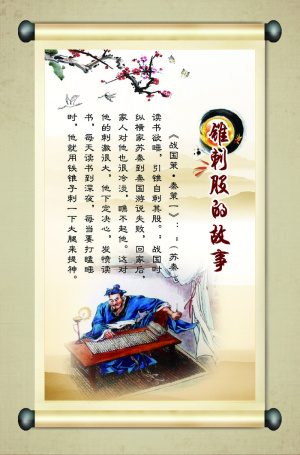 锥刺股的故事
《战国策·秦策一》：：（苏秦）
读书欲睡，引锥自刺其股。：战国时
纵横家苏秦到秦国游说失败，回家后，
家人对他也很冷淡，瞧不起他。这对
他的刺激很大，他下定决心，发愤读
书，每天读书到深夜，每当要打瞌睡
时，他就用铁锥子刺一下大腿来提神。